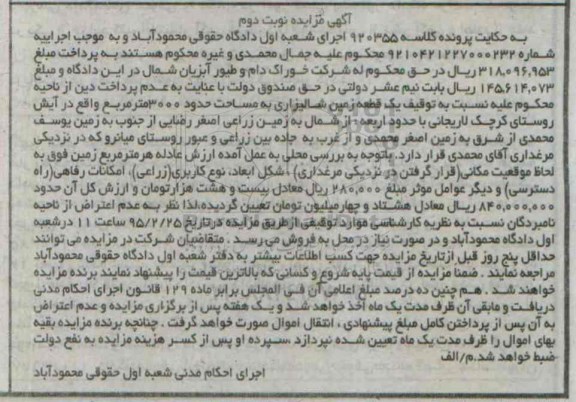 آگهی مزایده نوبت دوم
به حکایت پرونده کلاسه ۹۲۰۳۵۵ اجرای شعبه اول دادگاه حقوقی محمودآباد و به موجب اجراییه
شماره ۹۲۱۰۴۲۱۲۲۷۰۰۰۲۳۲ محکوم علیه جمال محمدی و غیره محکوم هستند به پرداخت مبلغ
۳۱۸,۰۹۶,۹۵۳ ریال در حق محکوم له شرکت خوراک دام و طیور آبزیان شمال در این دادگاه و مبلغ
۱۴۵۶۱۴,۰۷۳ ریال بابت نیم عشر دولتی در حق صندوق دولت با عنایت به عدم پرداخت دین از ناحیه
محکوم علیه نسبت به توقیف یک قطعه زمین شالیزاری به مساحت حدود ۳۰۰۰مترمربع واقع در آیش
روستای کرچک لاریجانی با حدود اربعه: از شمال به زمین زراعی اصغر رضایی از جنوب به زمین یوسف
محمدی از شرق به زمین اصغر محمدی و از غرب به جاده بین زراعی و عبور روستای میانرو که در نزدیکی
مرغداری آقای محمدی قرار دارد. باتوجه به بررسی محلی به عمل آمده ارزش عادله هرمترمربع زمین فوق به
لحاظ موقعیت مکانی(قرار گرفتن در نزدیکی مرغداری) ، شکل ابعاد، نوع کاربری(زراعی)، امکانات رفاهی(راه
دسترسی) و دیگر عوامل موثر مبلغ ۲۸۰,۰۰۰ ریال معادل بیست و هشت هزارتومان و ارزش کل آن حدود
۸۴۰,۰۰۰,۰۰۰ ریال معادل هشتاد و چهارمیلیون تومان تعیین گردیده،لذا نظر به عدم اعتراض از ناحیه
نامبردگان نسبت به نظریه کارشناسی موارد توقیفی از طریق مزایده در تاریخ ۹۵/۲/۲۵ ساعت ۱۱ درشعبه
اول دادگاه محمودآباد و در صورت نیاز در محل به فروش می رسد . متقاضیان شرکت در مزایده می توانند
حداقل پنج روز قبل ازتاریخ مزایده جهت کسب اطلاعات بیشتر به دفتر شعبه اول دادگاه حقوقی محمودآباد
مراجعه نمایند . ضمنا مزایده از قیمت پایه شروع و کسانی که بالاترین قیمت را پیشنهاد نمایند برنده مزایده
خواهند شد . هم چنین ده درصد مبلغ اعلامی آن فی المجلس برابر ماده ۱۲۹ قانون اجرای احکام مدنی
دریافت و مابقی آن ظرف مدت یک ماه اخذ خواهد شد و یک هفته پس از برگزاری مزایده و عدم اعتراض
به آن پس از پرداختن کامل مبلغ پیشنهادی ، انتقال اموال صورت خواهد گرفت . چنانچه برنده مزایده بقیه
بهای اموال را ظرف مدت یک ماه تعیین شده نپردازد ،سپرده او پس از کسر هزینه مزایده به نفع دولت
ضبط خواهد شد.م/الف
اجرای احکام مدنی شعبه اول حقوقی محمودآباد